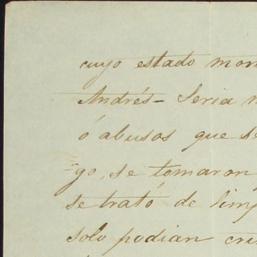 cuyo estado mor
Andrés - Seria n
ó abusos que se
go, se tomaron
se trató de limp
solo podian cre